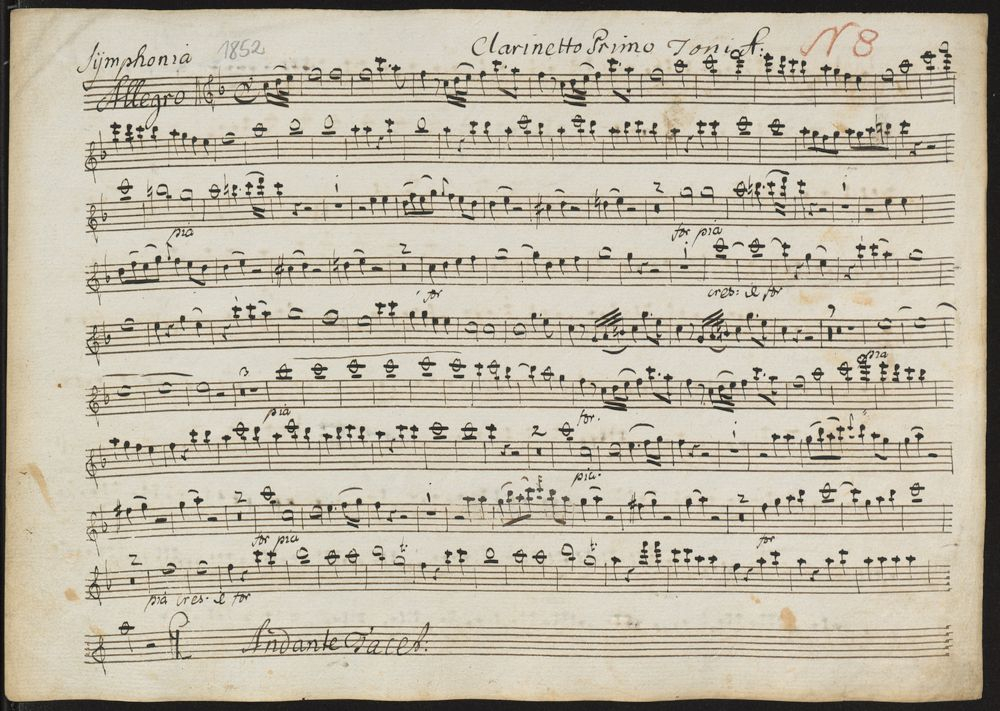 Symphonia 1852 Clarinetto Primo Toni A: N 8
Allegro
2
pia for pia
2
for cres: il for
pia
3
pia for.
2
pia.
2 2
for pia for
2
pia cres. il for
Andante Tacet.